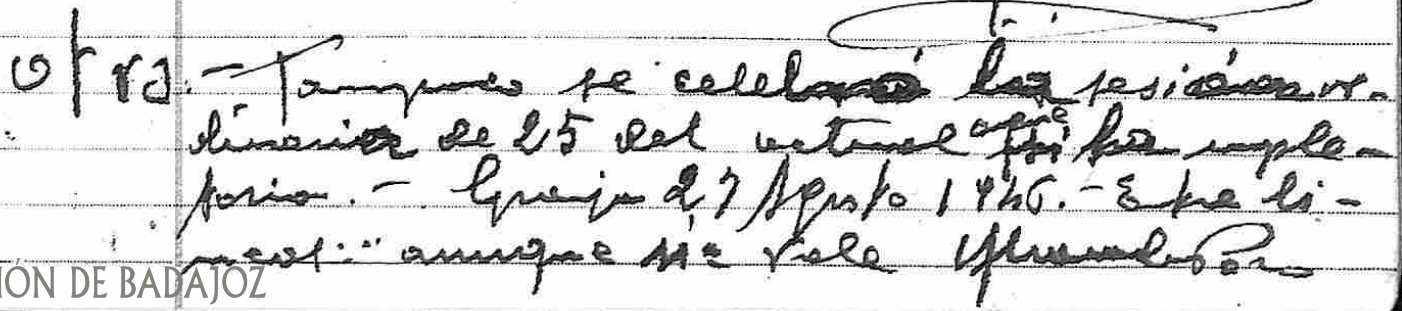 otra.- Tampoco se celebró la sesión or-
dinaria de 25 del actual aunque si la suple-
toria.- Granja 27 Agosto 1946.- Entre li-
neas: "aunque" Vale
IÓN DE BADAJOZ